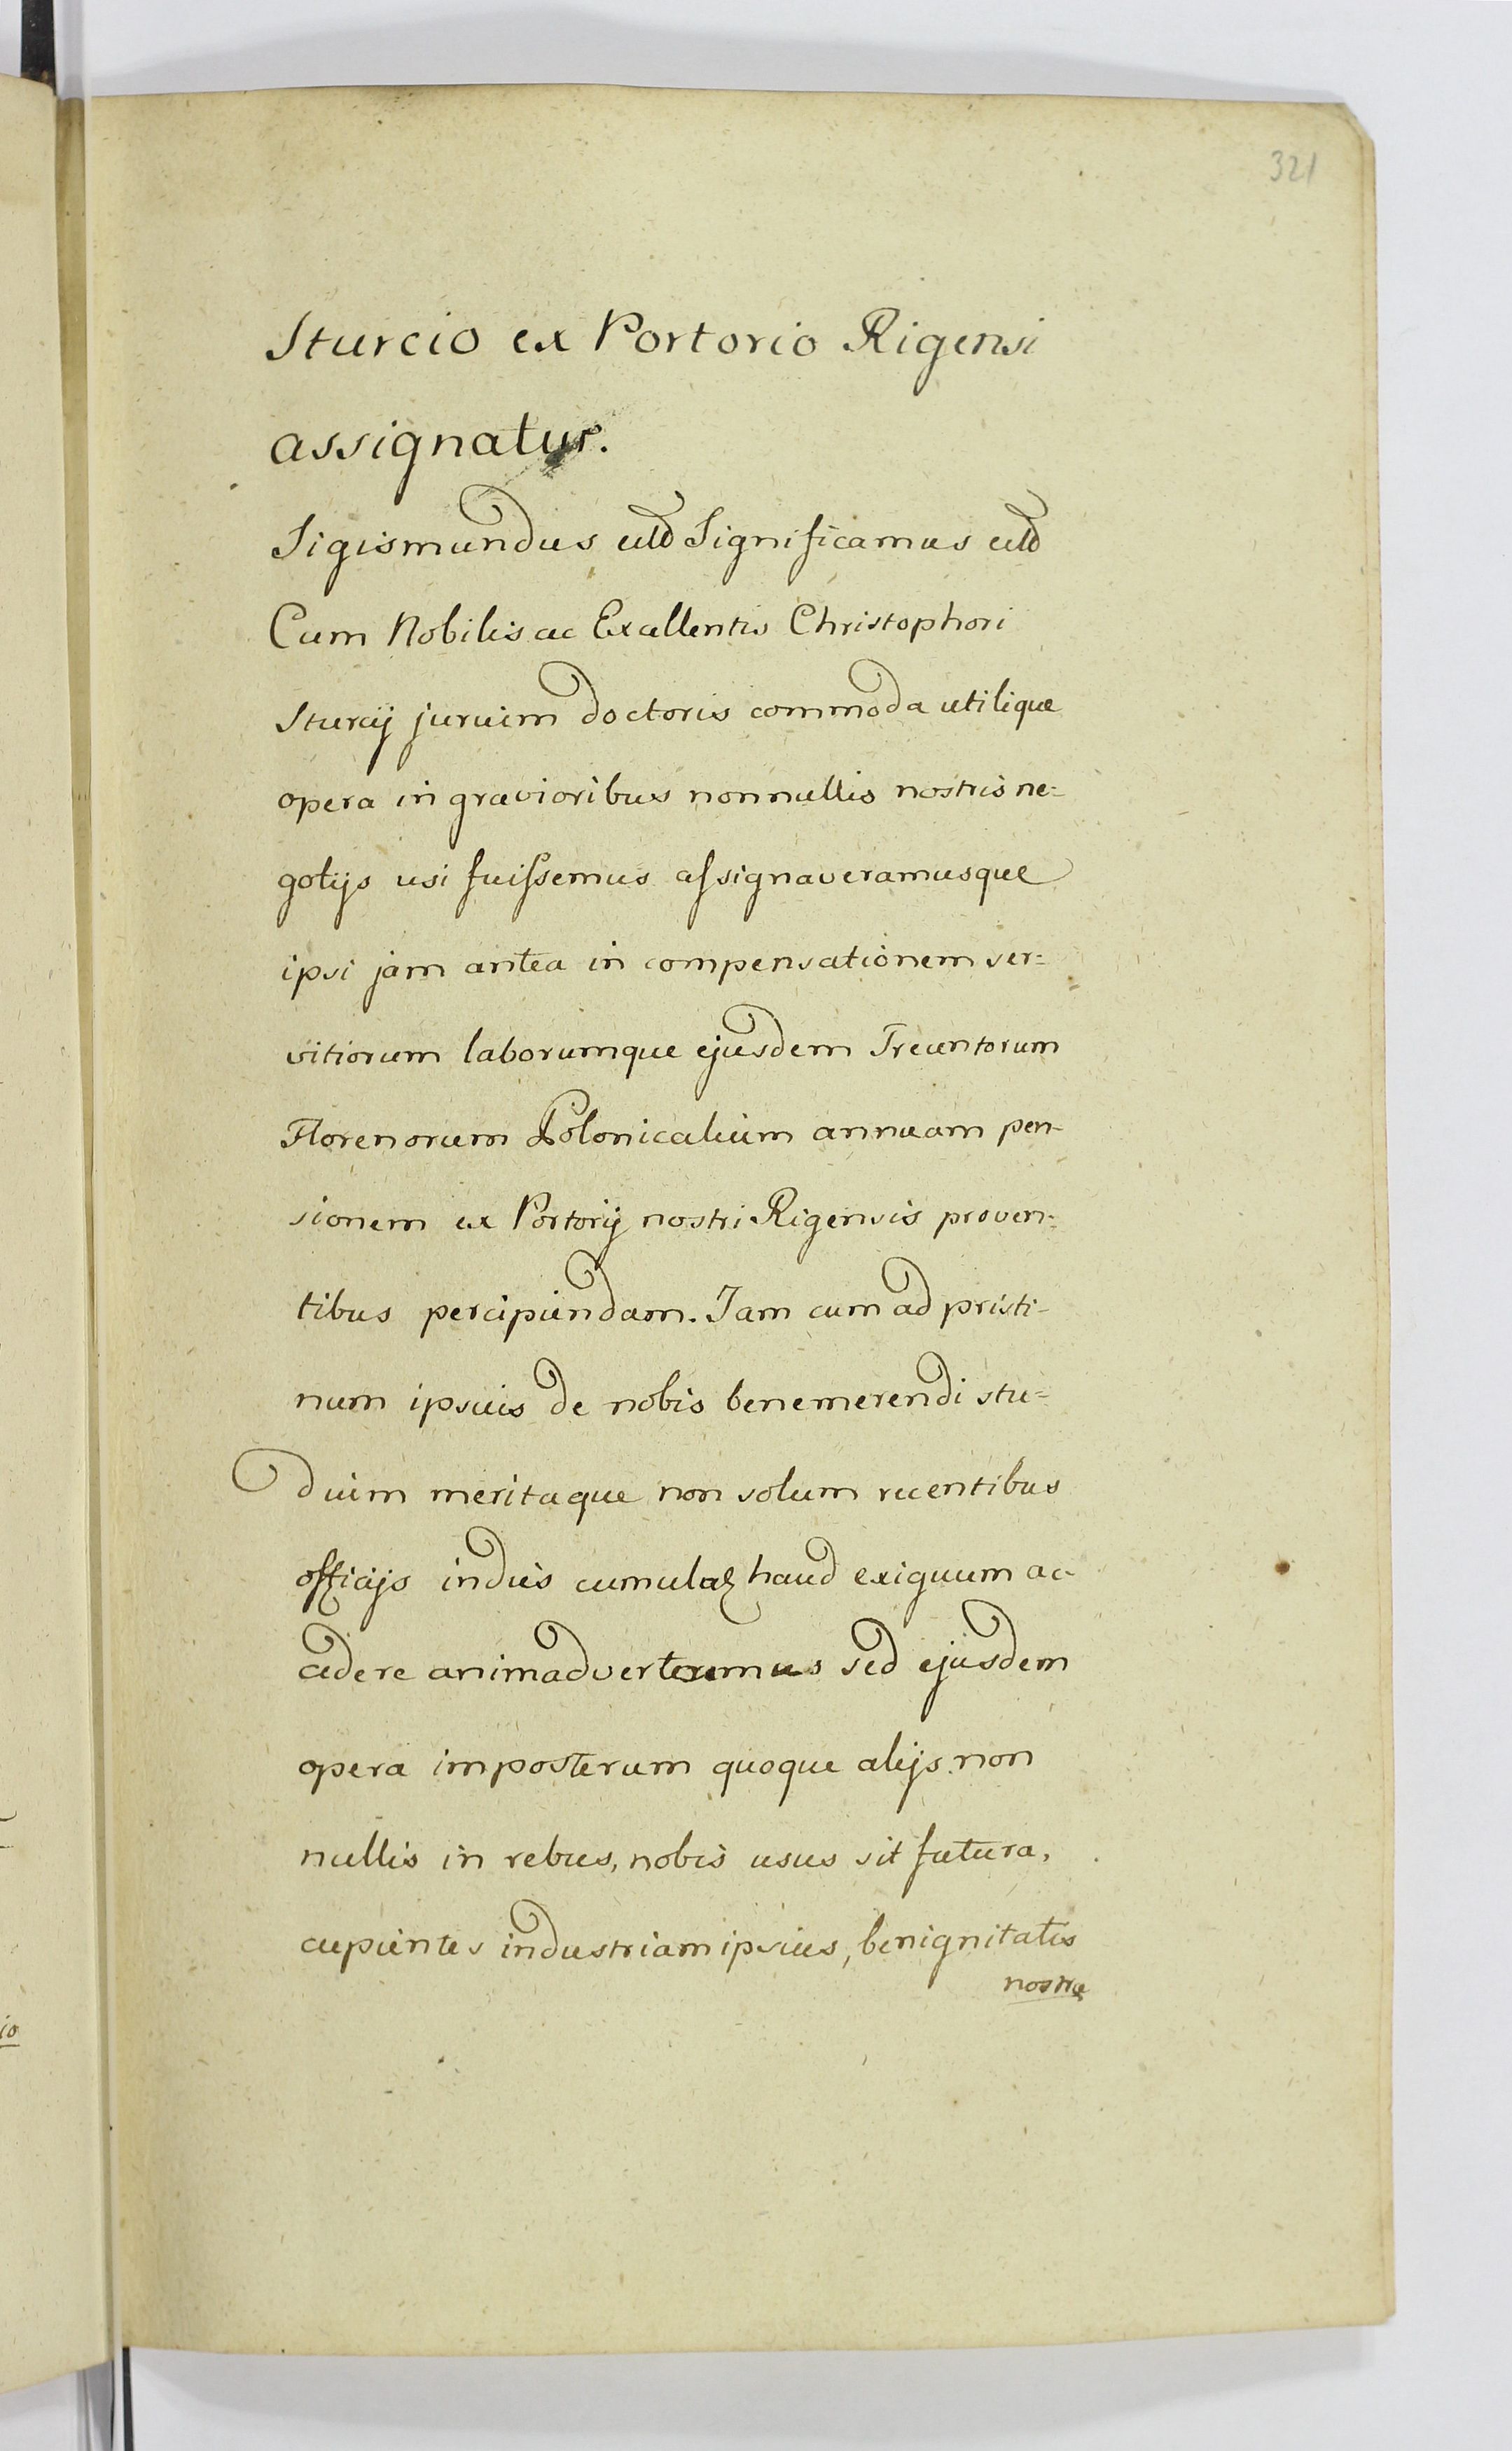 321
Sturcio ex Portorio Rigensi
assignatur.
Sigismundus Significamus
Cum Nobilis ac Excellentis Christophori
Sturcij jurium doctoris commoda utilique
opera in gravioribus nonnullis nostris ne=
gotijs usi fuissemus assignaveramusque
ipsi jam antea in compensationem ser=
vitiorum laborumque ejusdem Trecentorum
Florenorum Polonicalium annuam pen-
sionem ex Portorij nostri Rigensis proven=
tibus percipiendam. Jam cum ad pristi-
num ipsius de nobis benemerendi stu=
dium meritaque non solum recentibus
officijs indies haud exiguum ac-
cedere animadverteremus sed ejusdem
opera imposterum quoque alijs non
nullis in rebus, nobis usus sit futura,
cupientes industriam ipsius, benignitatis
nostræ